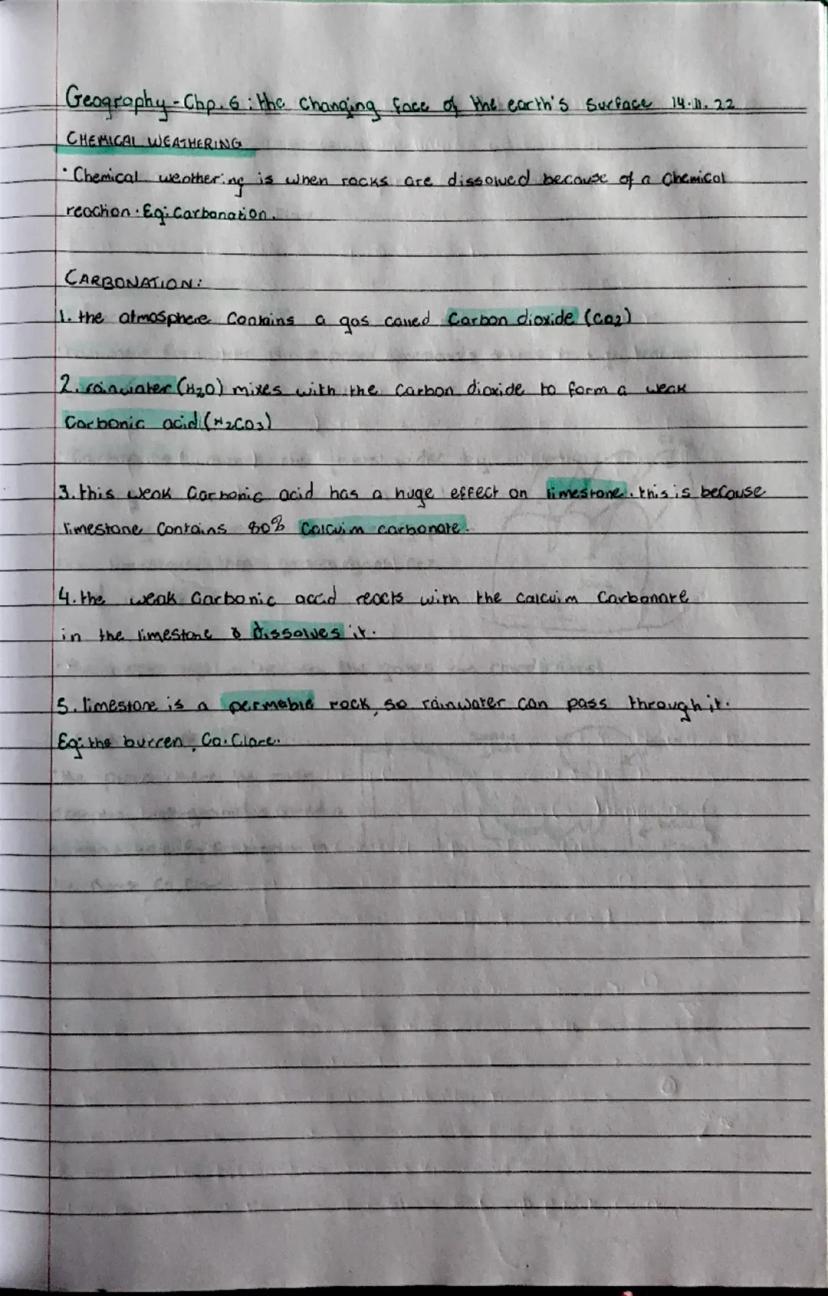 Geography - Chp. 6 : the Changing face of the earth's Surface 14.11.22
CHEMICAL WEATHERING
· Chemical weathering is when rocks are dissolved because of a chemical
reaction. Eg: Carbonation.
CARBONATION:
1. the atmosphere contains a gas called Carbon dioxide (CO2)
2. rainwater (H2O) mixes with the carbon dioxide to form a weak
Carbonic acid (H2CO3)
3. this weak Carbonic acid has a huge effect on limestone. this is because
limestone contains 80% Calcuim carbonate.
4. the weak Carbonic accid reacts with the calcuim Carbonate
in the limestone & dissolves it.
5. limestone is a permable rock, so rainwater can pass through it.
Eg: the burren, Co. Clare.